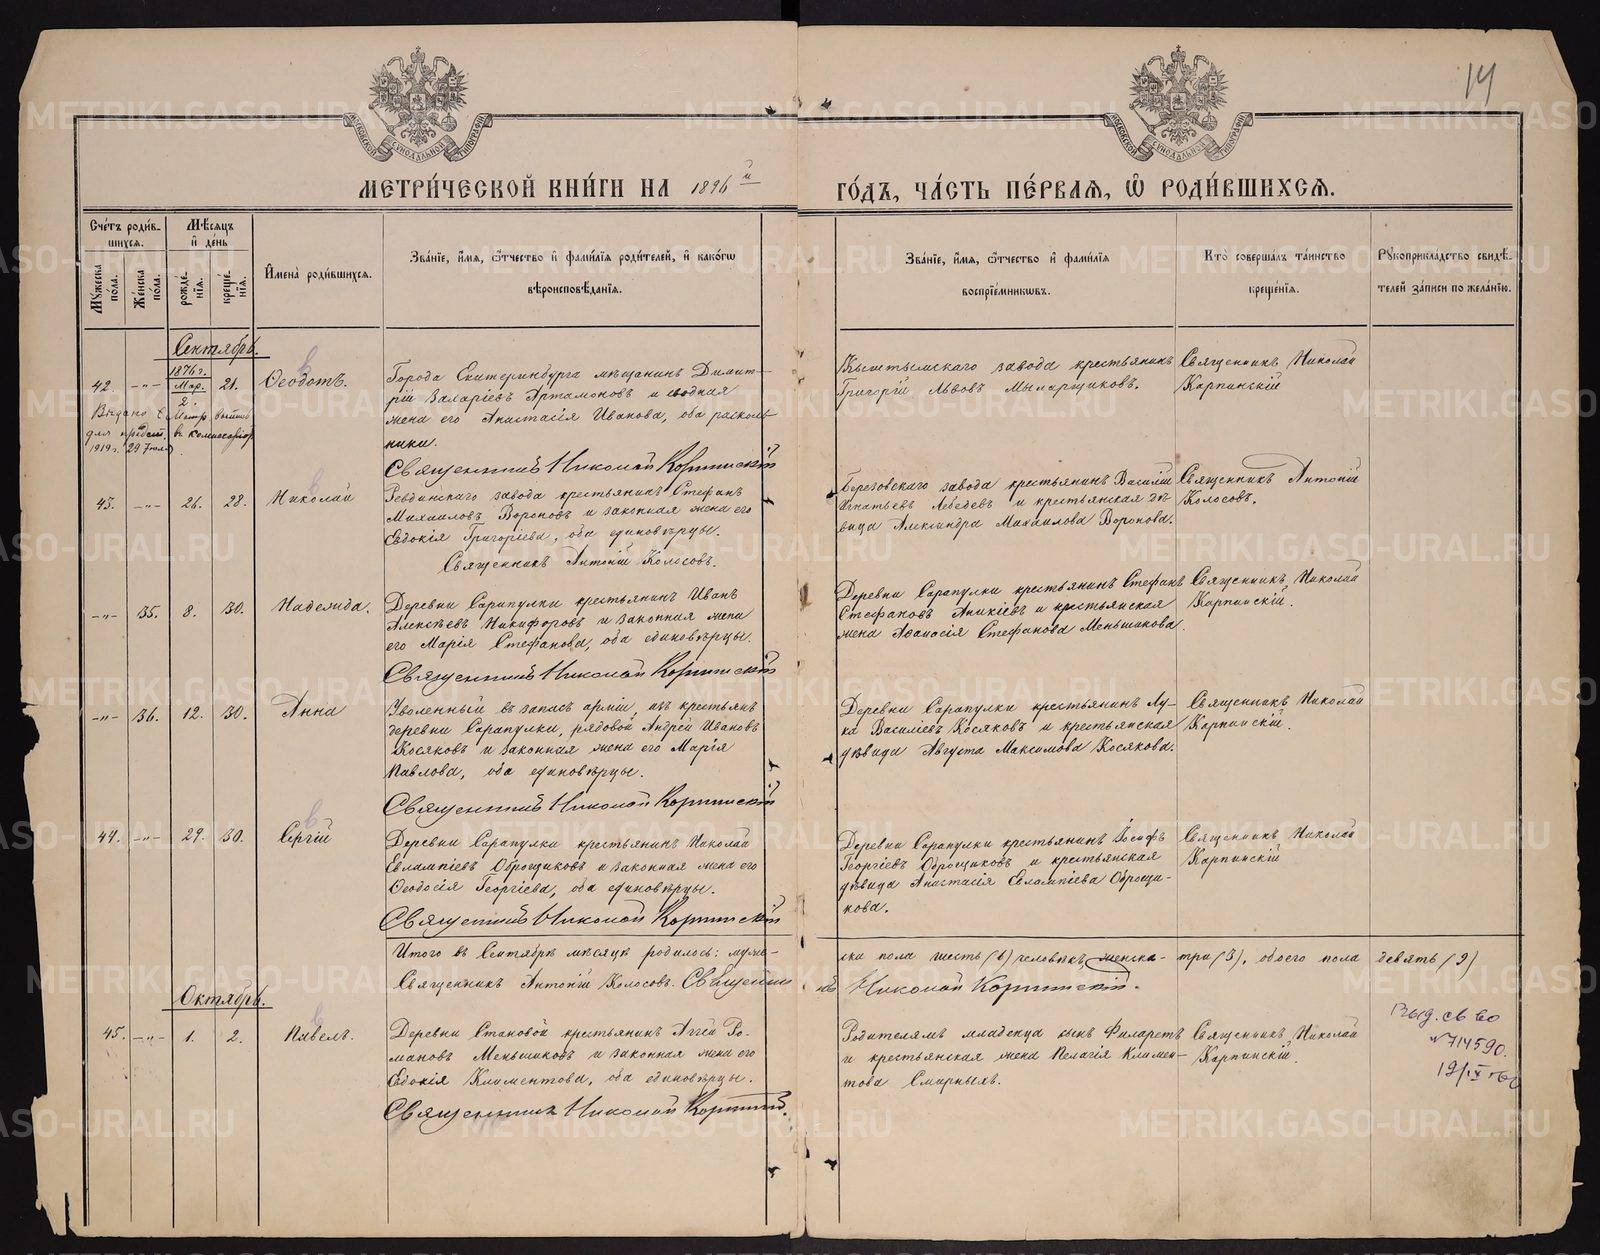 14
МОСКОВСКОЙ СѴНОДАЛЬНОЙ ТИПОГРАФІИ
МОСКОВСКОЙ СѴНОДАЛЬНОЙ ТИПОГРАФІИ
МЕТРИ́ЧЕСКОЙ КНИ́ГИ НА 1896 й
ГО́ДЪ, ЧА́СТЬ ПЕ́РВАѦ, Ѽ РОДИ́ВШИХСѦ.
Сче́тъ роди́в-
шихсѧ.
Мѣ́сѧцъ
и҆ де́нь
Мꙋ́жеска
пола.
Же́нска
по́ла.
рожде́-
нїѧ.
креще́-
нїѧ.
И҆мена̀ роди́вшихсѧ.
Зва́нїе, и҆́мѧ, ѻ҆́тчество и҆ фами́лїѧ роди́телей, и҆ како́гѡ
вѣроисповѣ́данїѧ.
Зва́нїе, и҆́мѧ, ѻ҆́тчество и҆ фами́лїѧ
воспрїе́мникѡвъ.
Кто̀ соверша́лъ та́инство
креще́нїѧ.
Рꙋкоприкла́дство свидѣ́-
телей за́писи по жела́нїю.
Сентябрь.
42. -"- 1876 г. Мар. 2. 21. Ѳеодотъ.
Города Екатеринбурга мѣщанинъ Димит-
рій Захаріевъ Артамоновъ и сводная
жена его Анастасія Иванова, оба расколь-
ники.
Священникъ Николай Карпинскій
Кыштымскаго завода крестьянинъ
Григорій Львовъ Мыларщиковъ.
Священникъ Николай
Карпинскій
Выдано
для
1919 г. 29 Іюля
43. -"- 26. 28. Николай
Ревдинскаго завода крестьянинъ Стефанъ
Михаиловъ Вороновъ и законная жена его
Евдокія Григоріева, оба единовѣрцы.
Священникъ Антоній Колосовъ.
Березовскаго завода крестьянинъ Василій
Игнатьевъ Лебедевъ и крестьянская дѣ-
вица Александра Михаилова Воронова.
Священникъ Антоній
Колосовъ.
-"- 35. 8. 30. Надежда.
Деревни Сарапулки крестьянинъ Иванъ
Алексѣевъ Никифоровъ и законная жена
его Марія Стефанова, оба единовѣрцы.
Священникъ Николай Карпинскій
Деревни Сарапулки крестьянинъ Стефанъ
Стефановъ Аникіевъ и крестьянская
жена Аѳанасія Стефанова Меньшикова.
Священникъ Николай
Карпинскій.
-"- 36. 12. 30. Анна
Уволенный въ запасъ арміи, изъ крестьянъ
деревни Сарапулки, рядовой Андрей Ивановъ
Косяковъ и законная жена его Марія
Павлова, оба единовѣрцы.
Священникъ Николай Карпинскій
Деревни Сарапулки крестьянинъ Лу-
ка Василіевъ Косяковъ и крестьянская
дѣвица Августа Максимова Косякова.
Священникъ Николай
Карпинскій.
44. -"- 29. 30. Сергій
Деревни Сарапулки крестьянинъ Николай
Евлампіевъ Оброщиковъ и законная жена его
Ѳеодосія Георгіева, оба единовѣрцы.
Священникъ Николай Карпинскій
Деревни Сарапулки крестьянинъ Іосифъ
Георгіевъ Оброщиковъ и крестьянская
дѣвица Анастасія Евлампіева Оброщи-
кова.
Священникъ Николай
Карпинскій
Итого въ Сентябрѣ мѣсяцѣ родилось: муже-
ска пола шесть (6) человѣкъ, женска- три (3), обоего пола девять (9)
Священникъ Антоній Колосовъ. Священникъ Николай Карпинскій.
Октябрь.
45. -"- 1. 2. Павелъ.
Деревни Становой крестьянинъ Аггей Ро-
мановъ Меньшиковъ и законная жена его
Евдокія Климентова, оба единовѣрцы.
Священникъ Николай Карпинскій.
Родителямъ младенца сынъ Филаретъ
и крестьянская жена Пелагія Климен-
това Смирныхъ.
Священникъ Николай
Карпинскій.
Выд. св во
№ 714590.
METRIKI.GASO-URAL.RU